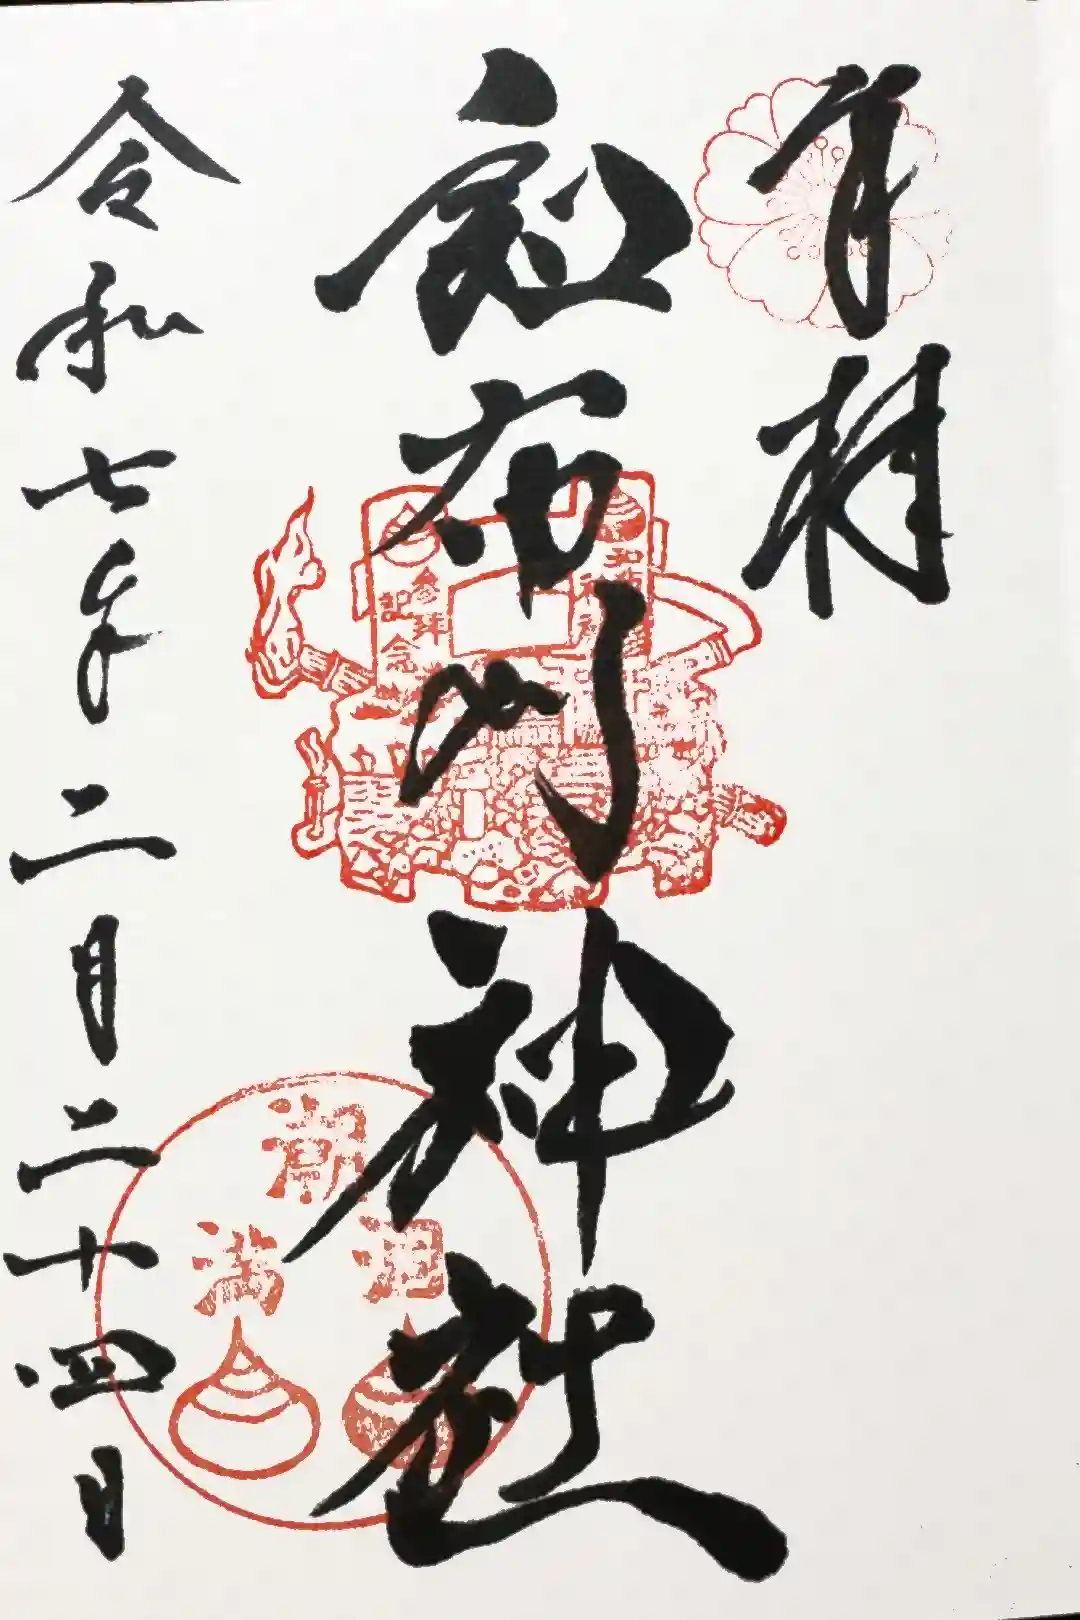 奉拝
和布刈神社
令和七年二月二十四日
参拝
記念
潮
満
涸